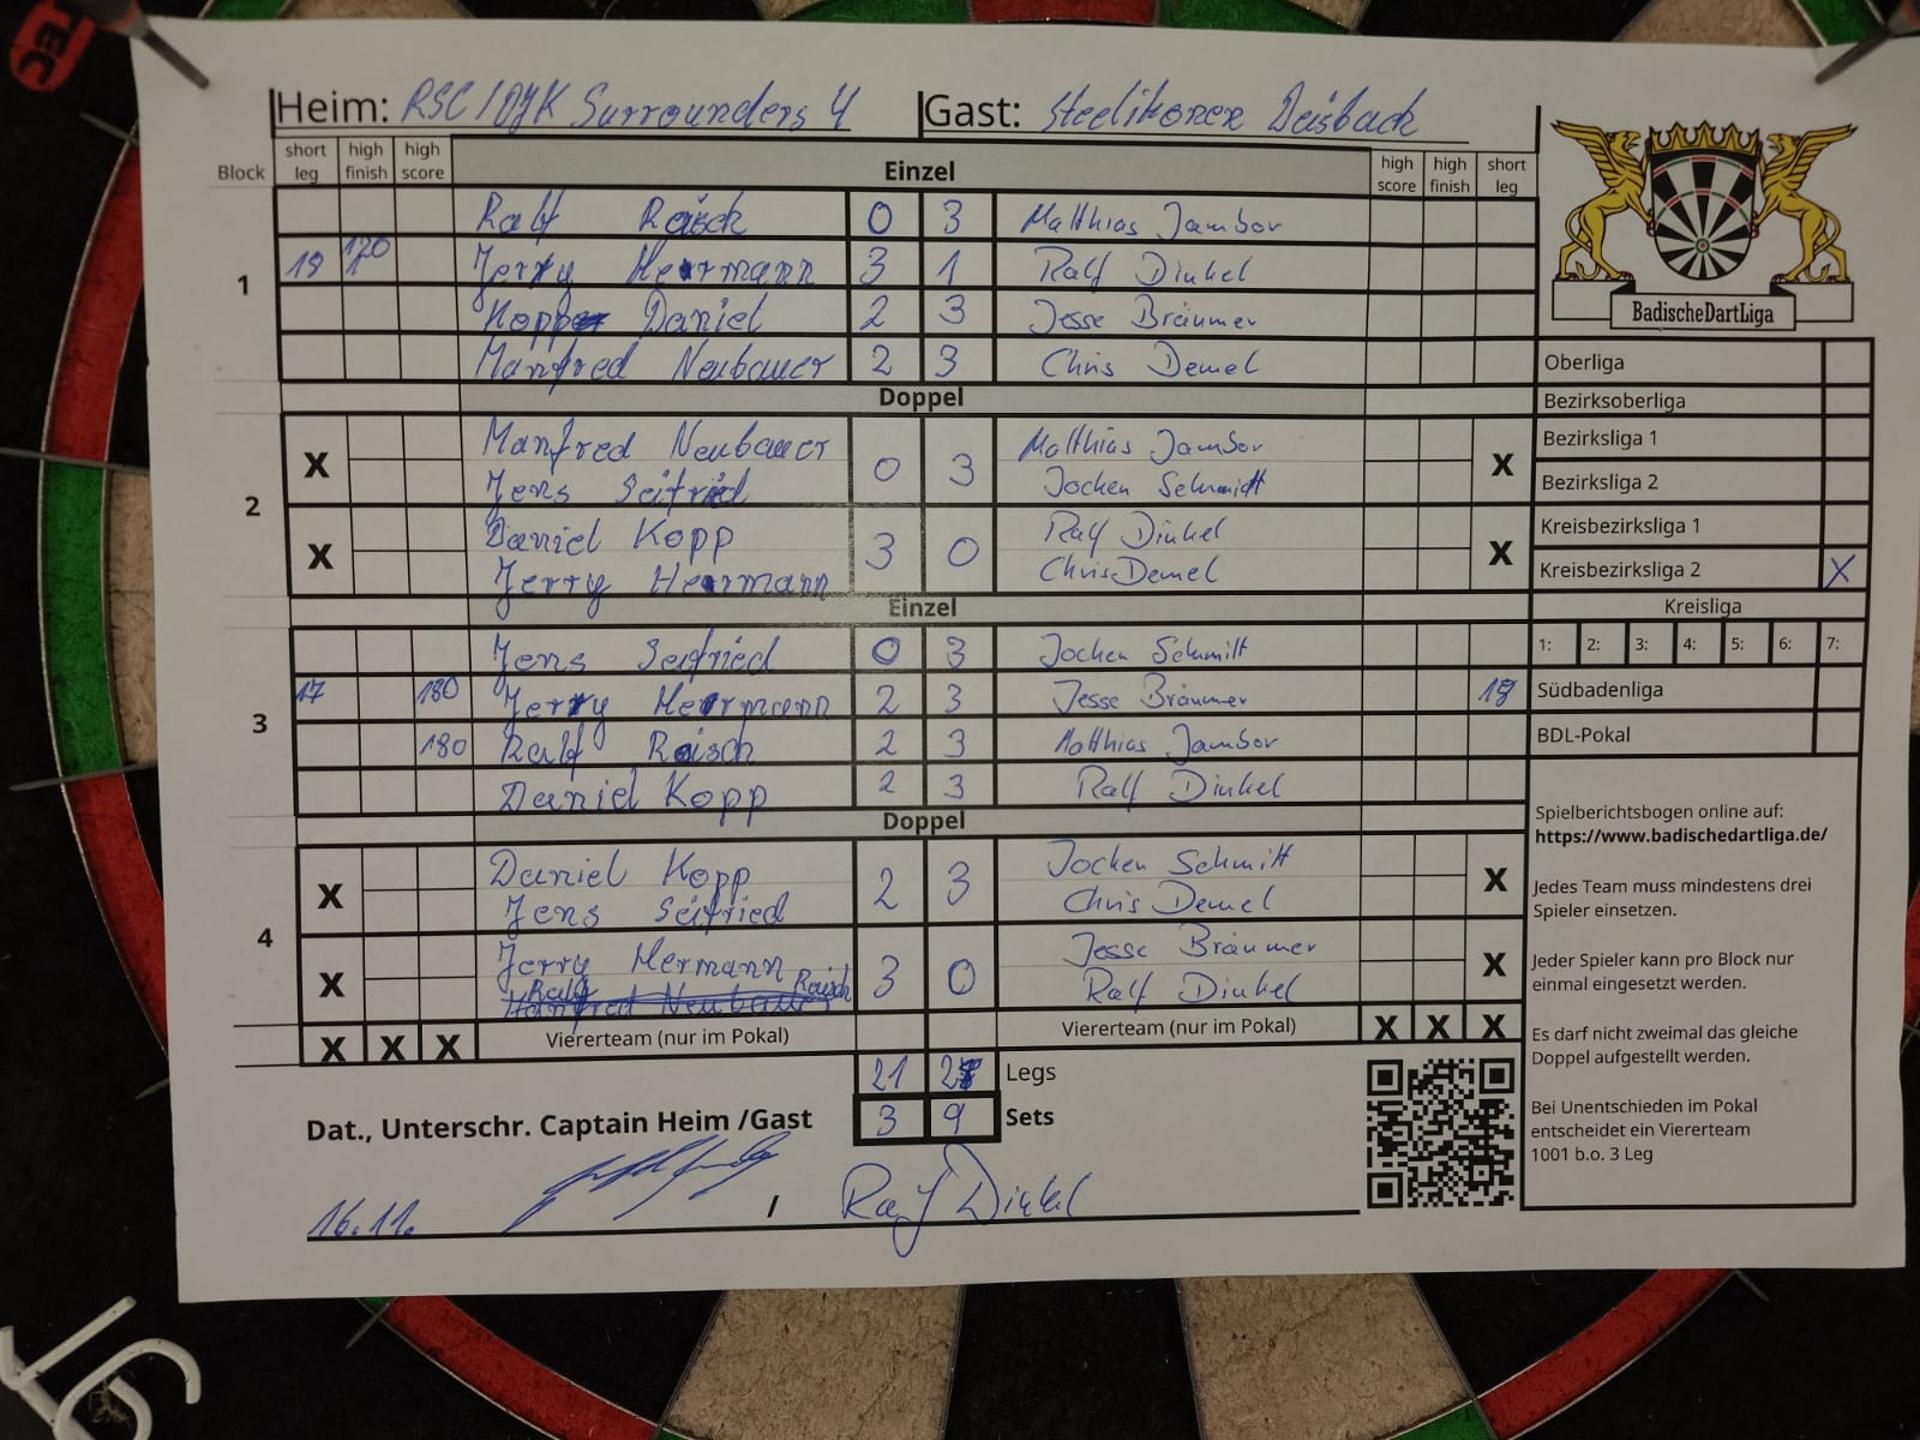 Heim: RSC/DJK Surrounders 4 Gast: Steelikoner Daisbach
Block short leg high finish high score Einzel high score high finish short leg
1
Ralf Raisch 0 3 Matthias Jambor
19 120 Jerry Herrmann 3 1 Ralf Dinkel
Kopp Daniel 2 3 Jesse Bräumer
Manfred Neubauer 2 3 Chris Demel
Doppel
2
X Manfred Neubauer 0 3 Matthias Jambor X
Jens Seifried Jochen Schmidt
X Daniel Kopp 3 0 Ralf Dinkel X
Jerry Herrmann Chris Demel
Einzel
3
Jens Seifried 0 3 Jochen Schmitt
17 180 Jerry Herrmann 2 3 Jesse Bräumer 18
180 Ralf Raisch 2 3 Matthias Jambor
Daniel Kopp 2 3 Ralf Dinkel
Doppel
4
X Daniel Kopp 2 3 Jochen Schmitt X
Jens Seifried Chris Demel
X Jerry Hermann 3 0 Jesse Bräumer X
Ralf Raisch Ralf Dinkel
Manfred Neubauer
X X X Viererteam (nur im Pokal) Viererteam (nur im Pokal) X X X
21 Legs
3 9 Sets
Dat., Unterschr. Captain Heim /Gast
16.11. / Ralf Dinkel
BadischeDartLiga
Oberliga
Bezirksoberliga
Bezirksliga 1
Bezirksliga 2
Kreisbezirksliga 1
Kreisbezirksliga 2 X
Kreisliga
1: 2: 3: 4: 5: 6: 7:
Südbadenliga
BDL-Pokal
Spielberichtsbogen online auf:
https://www.badischedartliga.de/
Jedes Team muss mindestens drei
Spieler einsetzen.
Jeder Spieler kann pro Block nur
einmal eingesetzt werden.
Es darf nicht zweimal das gleiche
Doppel aufgestellt werden.
Bei Unentschieden im Pokal
entscheidet ein Viererteam
1001 b.o. 3 Leg